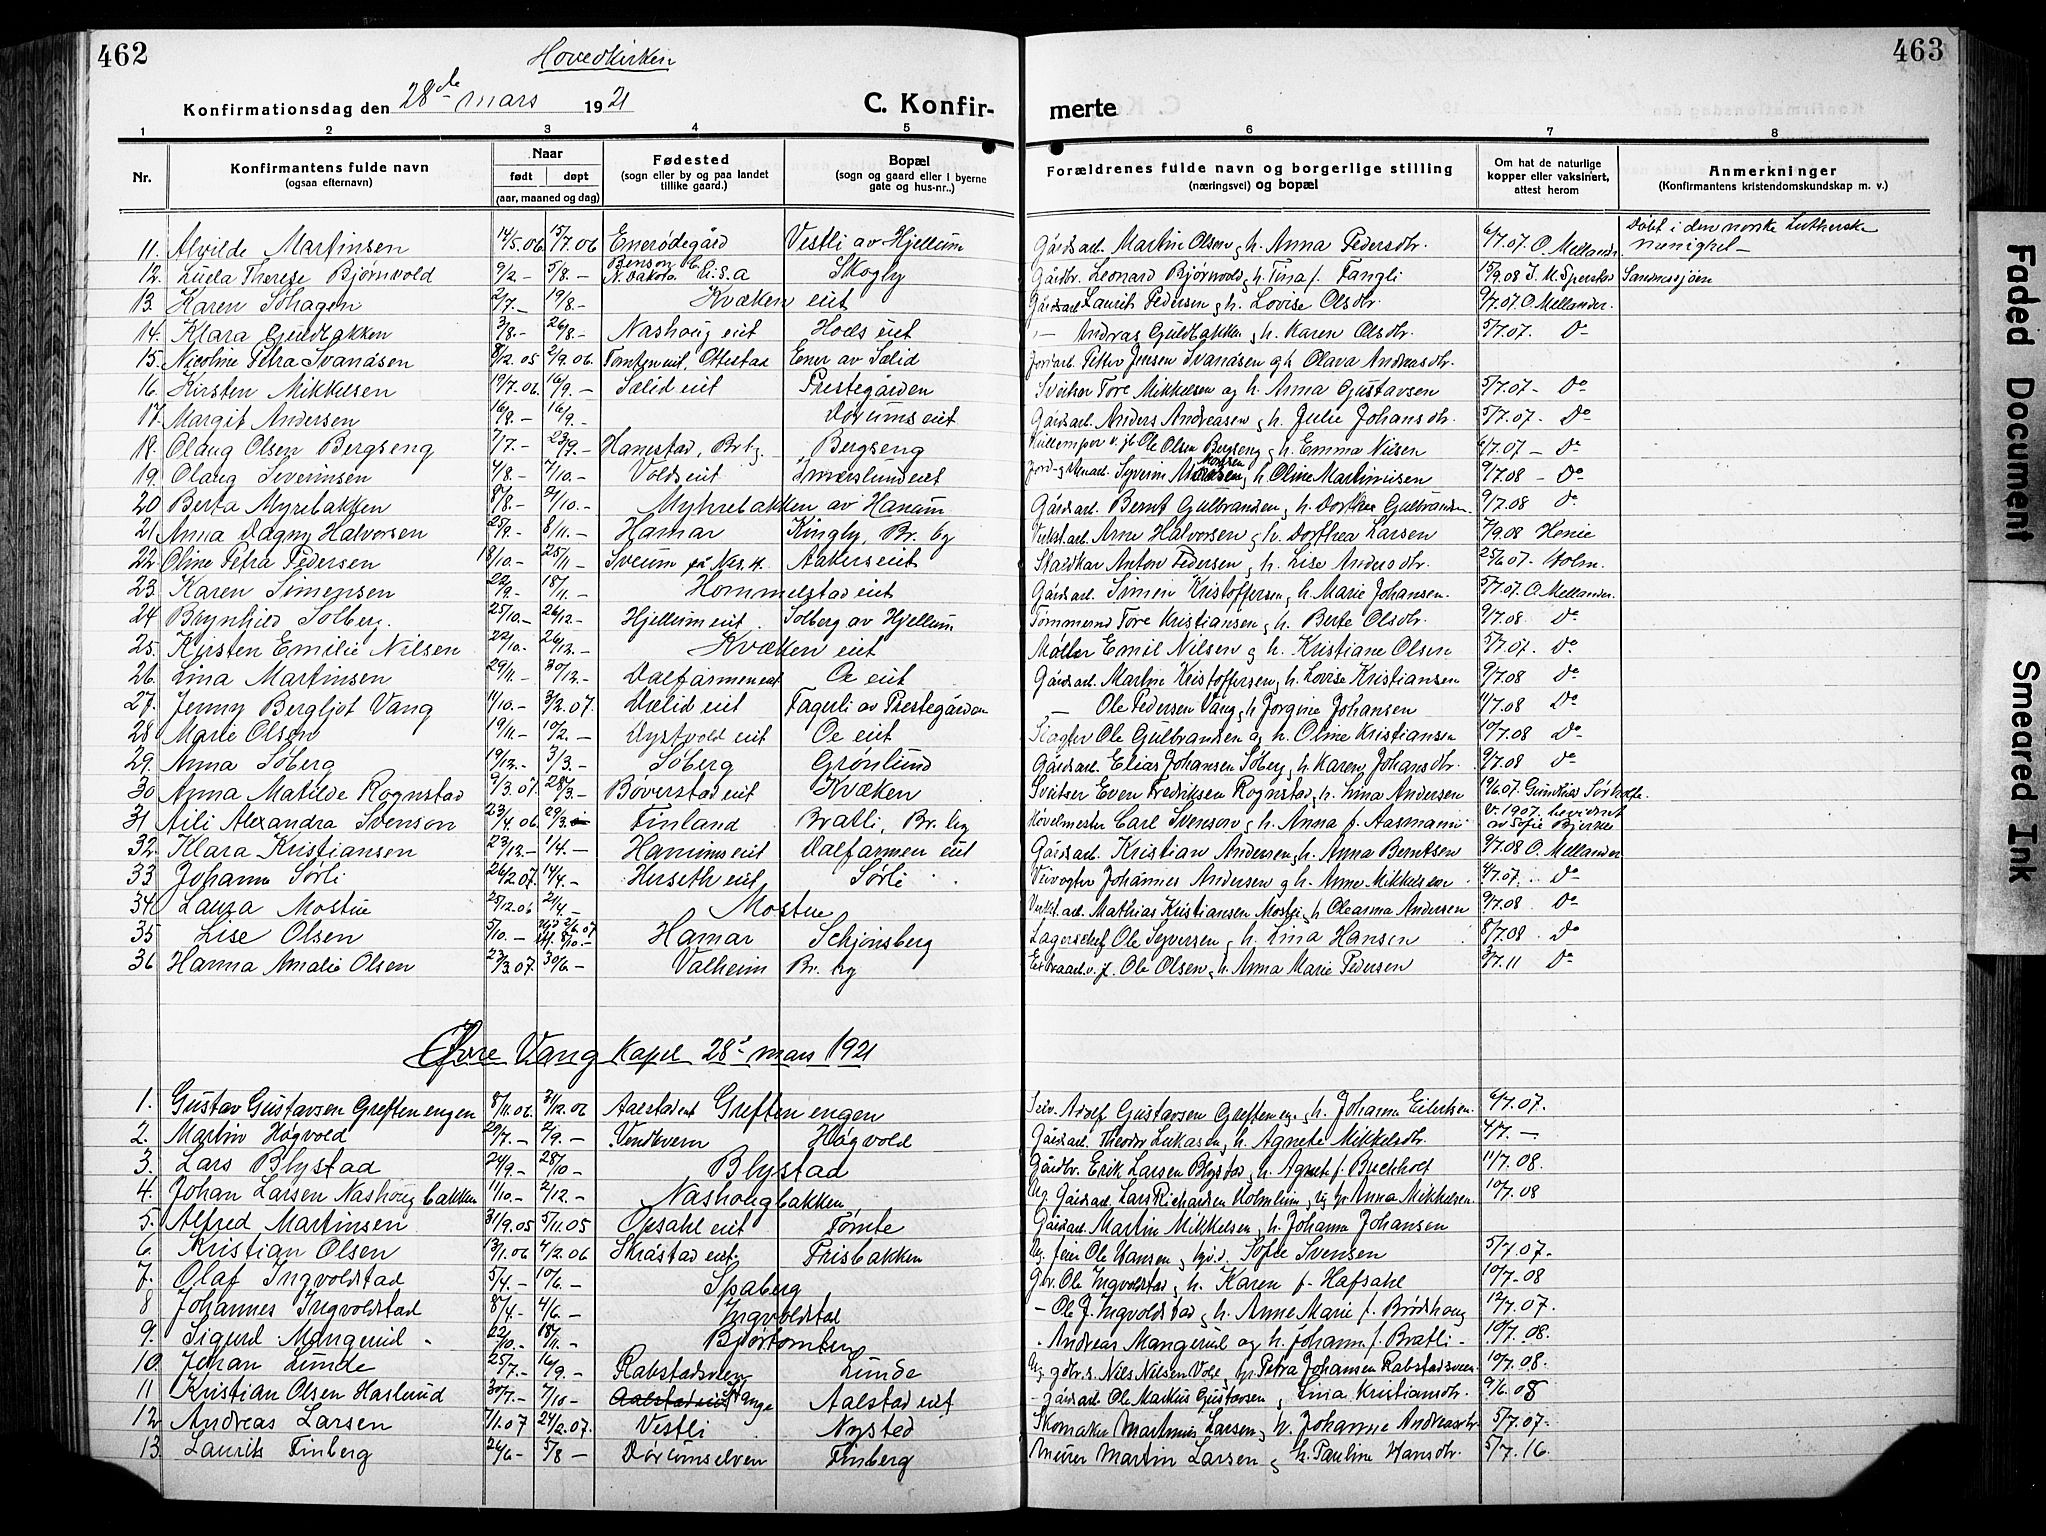 462
Hovedkirken
Konfirmationsdag den 28de mars 1921
C. Konfir-
merte
463
1 2 3 4 5 6 7 8
Nr.
Konfirmantens fulde navn
(ogsaa efternavn)
Naar
født døpt
(aar, maaned og dag)
Fødested
(sogn eller by og paa landet tillike gaard.)
Bopæl
(sogn og gaard eller i byerne gate og hus-nr..)
Forældrenes fulde navn og borgerlige stilling
(næringsvei) og bopæl
Om hat de naturlige kopper eller vaksinert, attest herom
Anmerkninger
(Konfirmantens kristendomskundskap m. v.)
11. Alvilde Martinsen 14/5.06 15/7.06 Enerødegård Vestli av Hjellum Gårdsarb. Martin Olsen og h. Anna Pedersdtr. 6/7.07. O. Mellander Døbt i den norske Lutherske menighet
12. Luela Therese Bjørnvold 9/2 - 5/8 - Benson N. Dakota U.S.a Skogly Gårdbr. Leonard Bjørnvold, h. Tina f. Fangli 15/9 08 Sandnessjøen
13. Karen Søhagen 2/7. - 19/8 - Kvæken eiet Gårdsarb. Laurits Pedersen og h. Lovise Olsdtr. 9/7.07 O. Mellander.
14. Klara Guldbakken 3/8. - 26/8 - Nashoug eiet Hoels eiet - Andreas Guldbakken og h. Karen Olsdtr. 5/7.07. Do
15. Nicoline Petra Svanåsen 8/12 05 2/9.06. Ottestad Ener av Sælid Jordarb. Petter Jensen Svanåsen og h. Olava Andreasdtr.
16. Kirsten Mikkelsen 19/7.06. 16/9. - Sælid eiet Prestegården Sveitser Tore Mikkelsen og h. Anna Gustavsen 5/7.07 - Do
17. Margit Andersen 16/8. - 16/9. - Dørums eiet Gårdsarb. Anders Andreasen og h. Julie Johansdtr. 5/7.07. Do
18. Olaug Olsen Bergseng 7/7. - 23/9. - Hanestad, Br.by. Bergseng Ole Olsen Bergseng og h. Emma Nilsen 6/7.07 - Do
19. Olaug Severinsen 4/8. - 7/10. - Volds eiet Imerslund eiet h. Oline Martinsen 9/7.08 - Do
20 Berta Myrebakken 8/8. - 21/10. - Myhrebakken av Hanum Gårdsarb. Bernt Gulbrandsen og h. Dorthea Gulbrandsen 9/7.08 Do
21. Anna Dagny Halvorsen 25/9. - 8/11. - Hamar Kingby, Br. by Verkst.arb. Arne Halvorsen og h. Dorthea Larsen 7/9.08 Honie
22. Oline Petra Pedersen 18/10. - 25/11 - Sveum på Nes H. Aakers eiet Staldkar Anton Pedersen og h. Lise Andersdtr. 25/6.07. Holm.
23. Karen Simensen 22/9. - 18/11. - Hommelstad eiet Gårdsarb. Simen Kristoffersen og h. Marie Johansen. 5/7.07. O. Mellander.
24 Brynhild Solberg. 25/10. - 26/12 - Hjellum eiet. Solberg av Hjellum Tømmermd. Tore Kristiansen og h. Berte Olsdtr. 9/7.08 Do
25. Kirsten Emilie Nilsen 22/10. - 26/12. - Kvæken eiet Møller Emil Nilsen og h. Kristiane Olsen 5/7.07. Do
26. Lina Martinsen 29/11. - 30/12. - Dalfarmen eiet Oe eiet Gårdsarb. Martin Kristoffersen og h. Lovise Kristiansen 9/7.08 Do
27. Jenny Bergljot Vang 14/10. - 3/2.07. Sælid eiet Fagerli av Prestegården - Ole Pedersen Vang og h. Jørgine Johansen 11/7.08 Do
28 Marie Olsen 19/11. - 10/2. - Dystvold eiet Oe eiet Ole Gulbrandsen og h. Oline Kristiansen 10/7.08 Do
29. Anna Søberg 19/12. - 3/3. - Søberg Grønlund Gårdsarb. Elias Johansen Søberg og h. Karen Johansdtr. 9/7.08 Do
30 Anna Matilde Rognstad 9/3.07. 28/3. - Bøverstad eiet Kvæken Sveitser Even Fredriksen Rognstad og h. Lina Andersen 19/6.07. Gunilius Sørholte.
31. Aili Alexandra Svenson 23/4.06. 29/3. Finland Bratli, Br. by Høvelmester Carl Svenson og h. Anna f. Aasmami v. 1907. bevidnet av Sofie Bjerkes
32. Klara Kristiansen 23/12. - 1/4. - Hanums eiet Dalfarmen eiet Gårdsarb. Kristian Andersen og h. Anna Berntsen 9/7.08 O. Mellander
33 Johanna Sørli 26/2 07. 14/4. - Herseth eiet Sørli Veivogter Johannes Andersen og h. Anne Mikkelsen 4/7.07. Do
34. Laura Mostue 25/12.06 21/4. - Mostue Verkst. arb. Mathias Kristiansen Mostue, h. Oleanna Andersen 9/7.08. Do
35 Lise Olsen 5/10. - Hamar Schjønsberg Lagerchef Ole Syversen og h. Lina Hansen 8/7.08. Do
36 Hanna Amalie Olsen 23/3.07. 30/6 - Valheim Br. by Extraarb. v. j. Ole Olsen og h. Anna Marie Pedersen 3/7.11 Do
Øvre Vang kapel 28de mars 1921
1. Gustav Gustavsen Greftenengen 8/11.06. 31/12.06 Aalstad eiet Greftenengen Selv. Adolf Gustavsen Greftenengen, h. Johanna Eilertsen. 6/7.07.
2. Martin Høgvold 29/7. - 2/9. - Vendkvern Høgvold Gårdsarb. Theodor Lukasen og h. Agnete Mikkelsdtr. 4/7. -
3. Lars Blystad 24/9. - 28/10 - Blystad Gårdbr. Erik Larsen Blystad og h. Agnete f. Buchholt 11/7.08.
4. Johan Larsen Nashougbakken 11/10. - 2/12. - Nashougbakken Ug. Gårdsarb. Lars Richardsen Holmlund, ug. pr. Anna Mikkelsen. 10/7.08
5. Alfred Martinsen 31/9.05 5/11.05 Opsahl eiet Tømte Gårdsarb. Martin Mikkelsen og h. Johanne Johansen
6. Kristian Olsen 13/1.06 4/2.06 Skråstad eiet. Frisbakken Ug. feier Ole Hansen og Sofie Svensen 5/7.07.
7. Olaf Ingvoldstad 5/4. - 10/6. - Spaberg Gbr. Ole Ingvoldstad og h. Karen f. Hafsahl 10/7-08
8 Johannes Ingvoldstad 8/4. - 4/6. - Ingvoldstad - Ole J. Ingvoldstad og h. Anne Marie f. Brødshoug 12/7.07.
9. Sigurd Mangerud 22/10. - 18/11. - Bjørtomten - Andreas Mangerud og h. Johanne f. Bratli 10/7.08.
10. Johan Lunde 25/7. - 16/9. - Rabstadsveen Lunde Ug. gdbr.s. Nils Nilsen Vold, p. Petra Johansen Rabstadsveen 10/7.08.
11 Kristian Olsen Haslund 30/7. - 7/10 - Aalstad eiet Stange Aalstad eiet - gårdsarb. Ole Markus Gustavsen og Lina Kristiansdtr. 9/6.08
12 Andreas Larsen 7/1.07 24/2.07. Vestli Nystad Skomaker Martinius Larsen og h. Johanne Andreasdtr. 5/7.07.
13. Laurits Finberg 26/6 - 5/8 - Dørumselven Finberg Murer Martin Larsen og h. Pauline Hansdtr. 5/7.16.
Faded Document
Smeared Ink